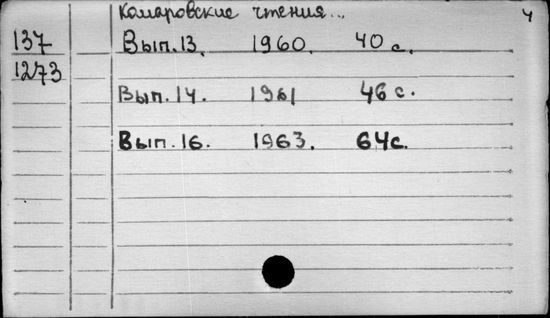 Комаровские чтения... 4
137 Вып. 13. 1960. 40 с.
1273
Вып. 14. 1961 46 с.
Вып. 16. 1963. 64 с.